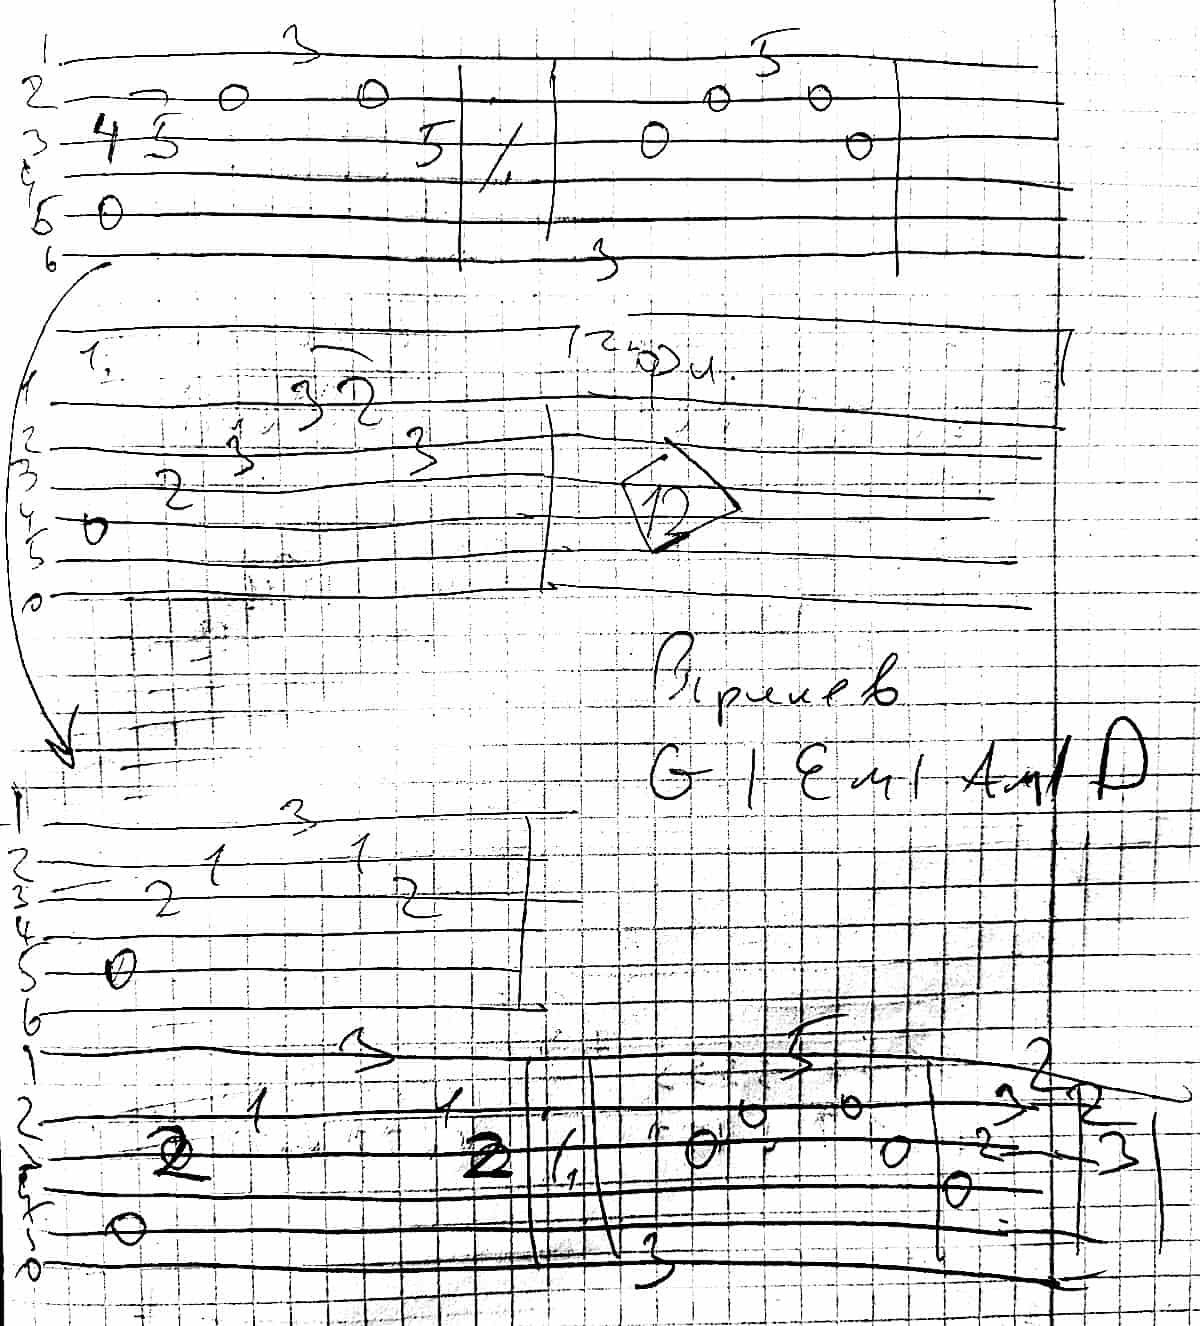 1. 3 5
2 0 0 0 0
3 4 5 5 % 0 0
4
5 0
6 3
1. 2
1 3 2
2 3 3
3 2
4 0 12
5
6
Припев
G | Em | Am | D
1 3
2 1 1
3 2 2
4
5 0
6
1 3 5 2
2 1 1 0 0 3 2
3 2 2 % 0 0 2 3
4 0
5 0
6 3